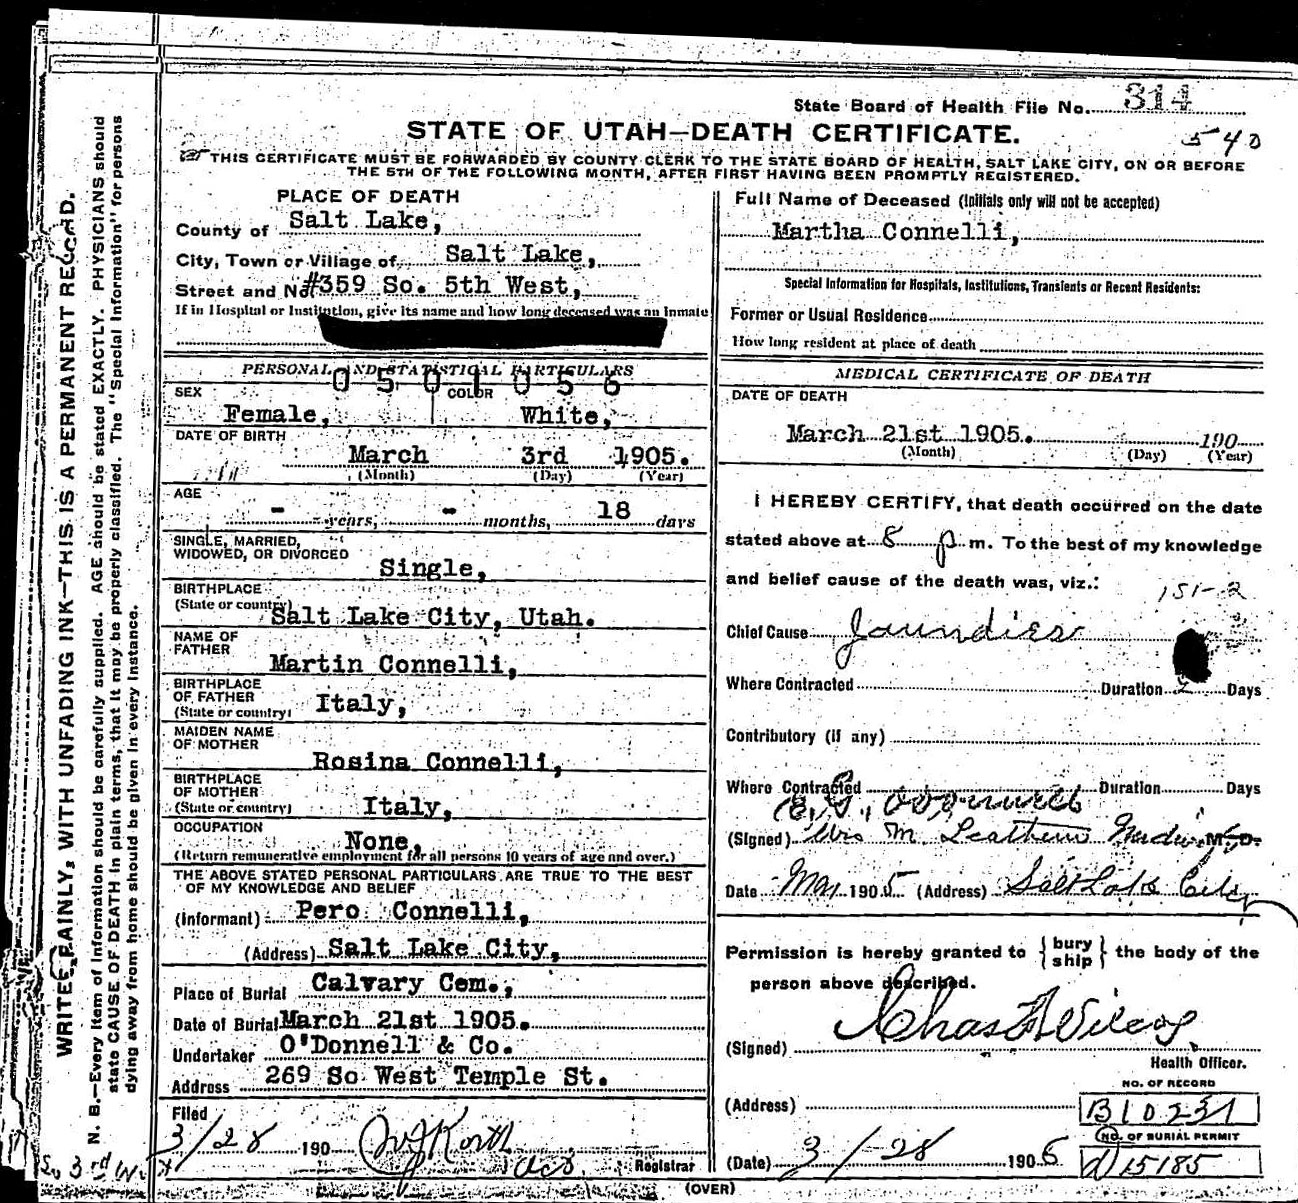 State Board of Health File No. 314
STATE OF UTAH—DEATH CERTIFICATE.
540
THIS CERTIFICATE MUST BE FORWARDED BY COUNTY CLERK TO THE STATE BOARD OF HEALTH, SALT LAKE CITY, ON OR BEFORE
THE 5TH OF THE FOLLOWING MONTH, AFTER FIRST HAVING BEEN PROMPTLY REGISTERED.
PLACE OF DEATH
County of Salt Lake,
City, Town or Village of Salt Lake,
Street and No. #359 So. 5th West,
If in Hospital or Institution, give its name and how long deceased was an Inmate
PERSONAL AND STATISTICAL PARTICULARS
0501056
SEX Female,
COLOR White,
DATE OF BIRTH
March 3rd 1905.
(Month) (Day) (Year)
AGE
- years, - months, 18 days
SINGLE, MARRIED,
WIDOWED, OR DIVORCED
Single,
BIRTHPLACE
(State or country) Salt Lake City, Utah.
NAME OF
FATHER
Martin Connelli,
BIRTHPLACE
OF FATHER
(State or country) Italy,
MAIDEN NAME
OF MOTHER
Rosina Connelli,
BIRTHPLACE
OF MOTHER
(State or country) Italy,
OCCUPATION
None,
(Return remunerative employment for all persons 10 years of age and over.)
THE ABOVE STATED PERSONAL PARTICULARS ARE TRUE TO THE BEST
OF MY KNOWLEDGE AND BELIEF
(Informant) Pero Connelli,
(Address) Salt Lake City,
Place of Burial Calvary Cem.,
Date of Burial March 21st 1905.
Undertaker O'Donnell & Co.
Address 269 So West Temple St.
Filed
3/28 190
Registrar
Full Name of Deceased (Initials only will not be accepted)
Martha Connelli,
Special Information for Hospitals, Institutions, Transients or Recent Residents:
Former or Usual Residence
How long resident at place of death
MEDICAL CERTIFICATE OF DEATH
DATE OF DEATH
March 21st 1905. 190
(Month) (Day) (Year)
I HEREBY CERTIFY, that death occurred on the date
stated above at 8 p m. To the best of my knowledge
and belief cause of the death was, viz.:
151-2
Chief Cause Jaundice
Where Contracted Duration Days
Contributory (if any)
Where Contracted Duration Days
(Signed) Mrs M M.D.
Date Mar 1905 (Address) Salt Lake City
Permission is hereby granted to { bury ship } the body of the
person above described.
(Signed) Chas F Wilcox
Health Officer.
(Address)
NO. OF RECORD
B10231
NO. OF BURIAL PERMIT
15185
(Date) 3/-28 1906
(OVER)
WRITE PLAINLY, WITH UNFADING INK—THIS IS A PERMANENT RECORD.
N. B.—Every item of information should be carefully supplied. AGE should be stated EXACTLY. PHYSICIANS should
state CAUSE OF DEATH in plain terms, that it may be properly classified. The "Special Information" for persons
dying away from home should be given in every instance.
3rd W